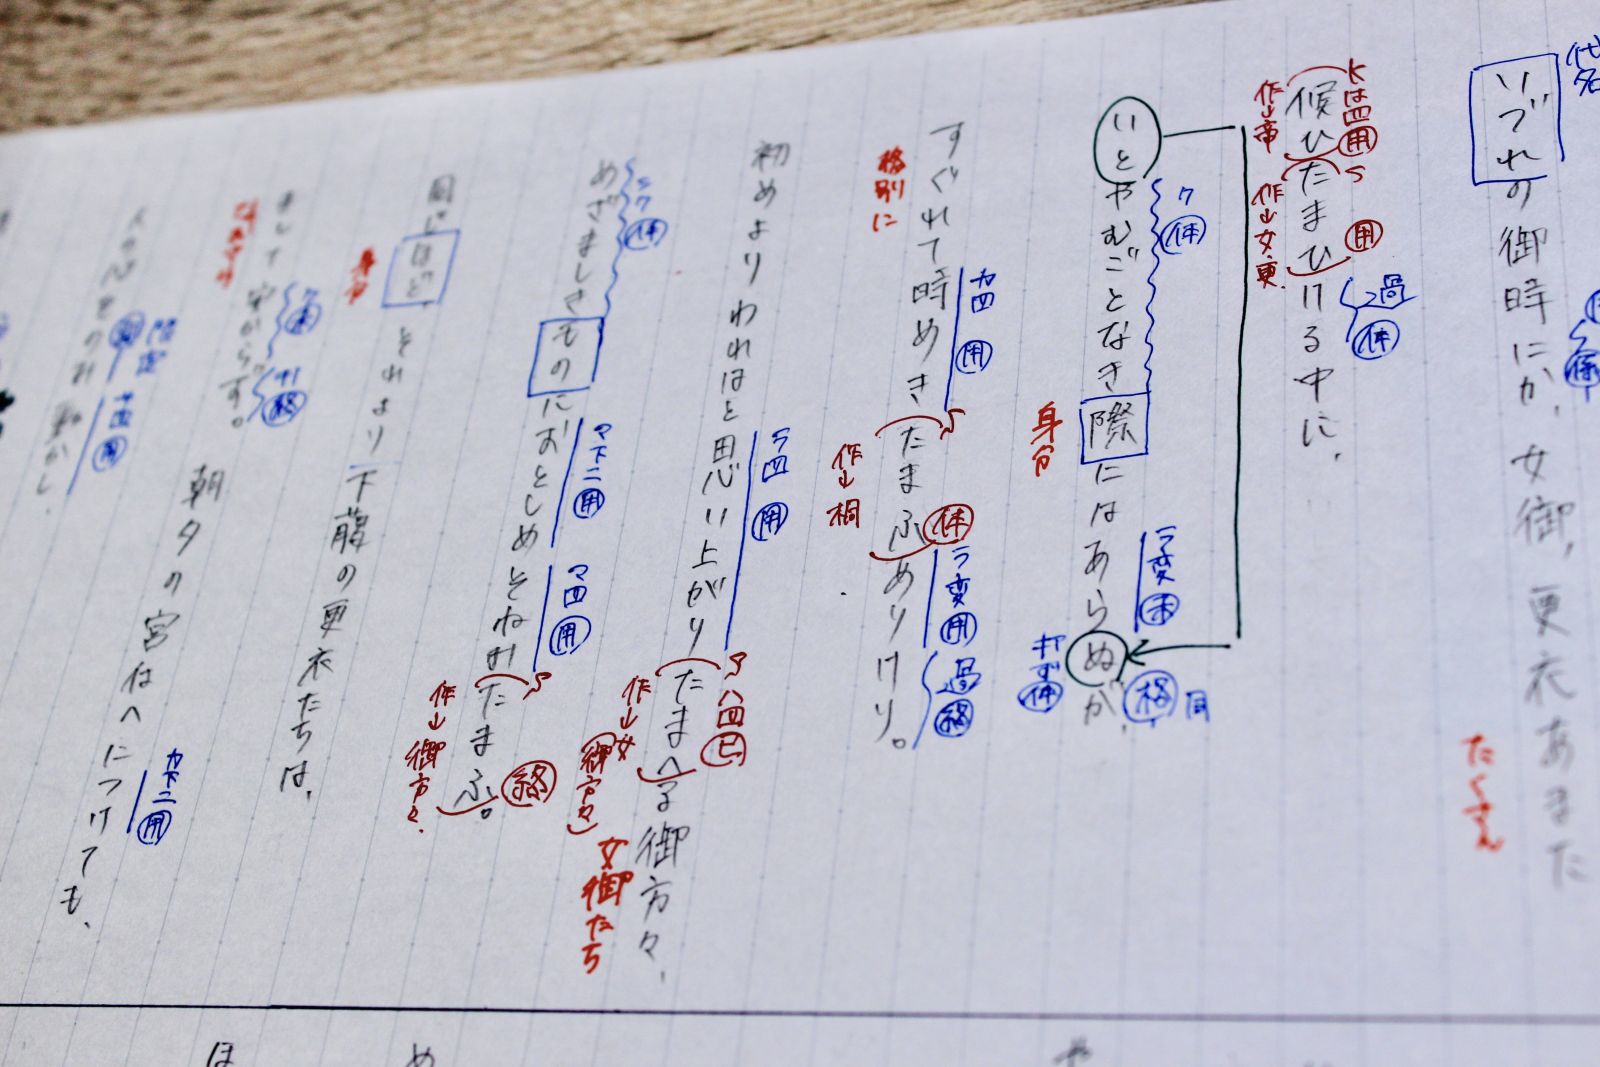 代名
いづれの御時にか、女御、更衣あまた
たくさん
K は四 用 S 用 過 体
候ひたまひける中に、
作→帝 作→女・更
ク 体 ラ変 未 格 同
いとやむごとなき際にはあらぬが、
身分 打ず 体
カ四 用 S 体 ラ変 用 過 終
すぐれて時めきたまふありけり。
格別に 作→桐
ラ四 用 S ハ四 已
初めよりわれはと思い上がりたまへる御方々、
作→女(御方々) 女御たち
シク 体 マ下二 用 マ四 用 S 終
めざましきものにおとしめそねみたまふ。
作→御方々
同じほど それより下臈の更衣たちは、
身分
ク 未 打 終
まして安からず。
カ下二 用
朝夕の宮仕へにつけても、
サ四 用
人の心をのみ動かし
ほ め や